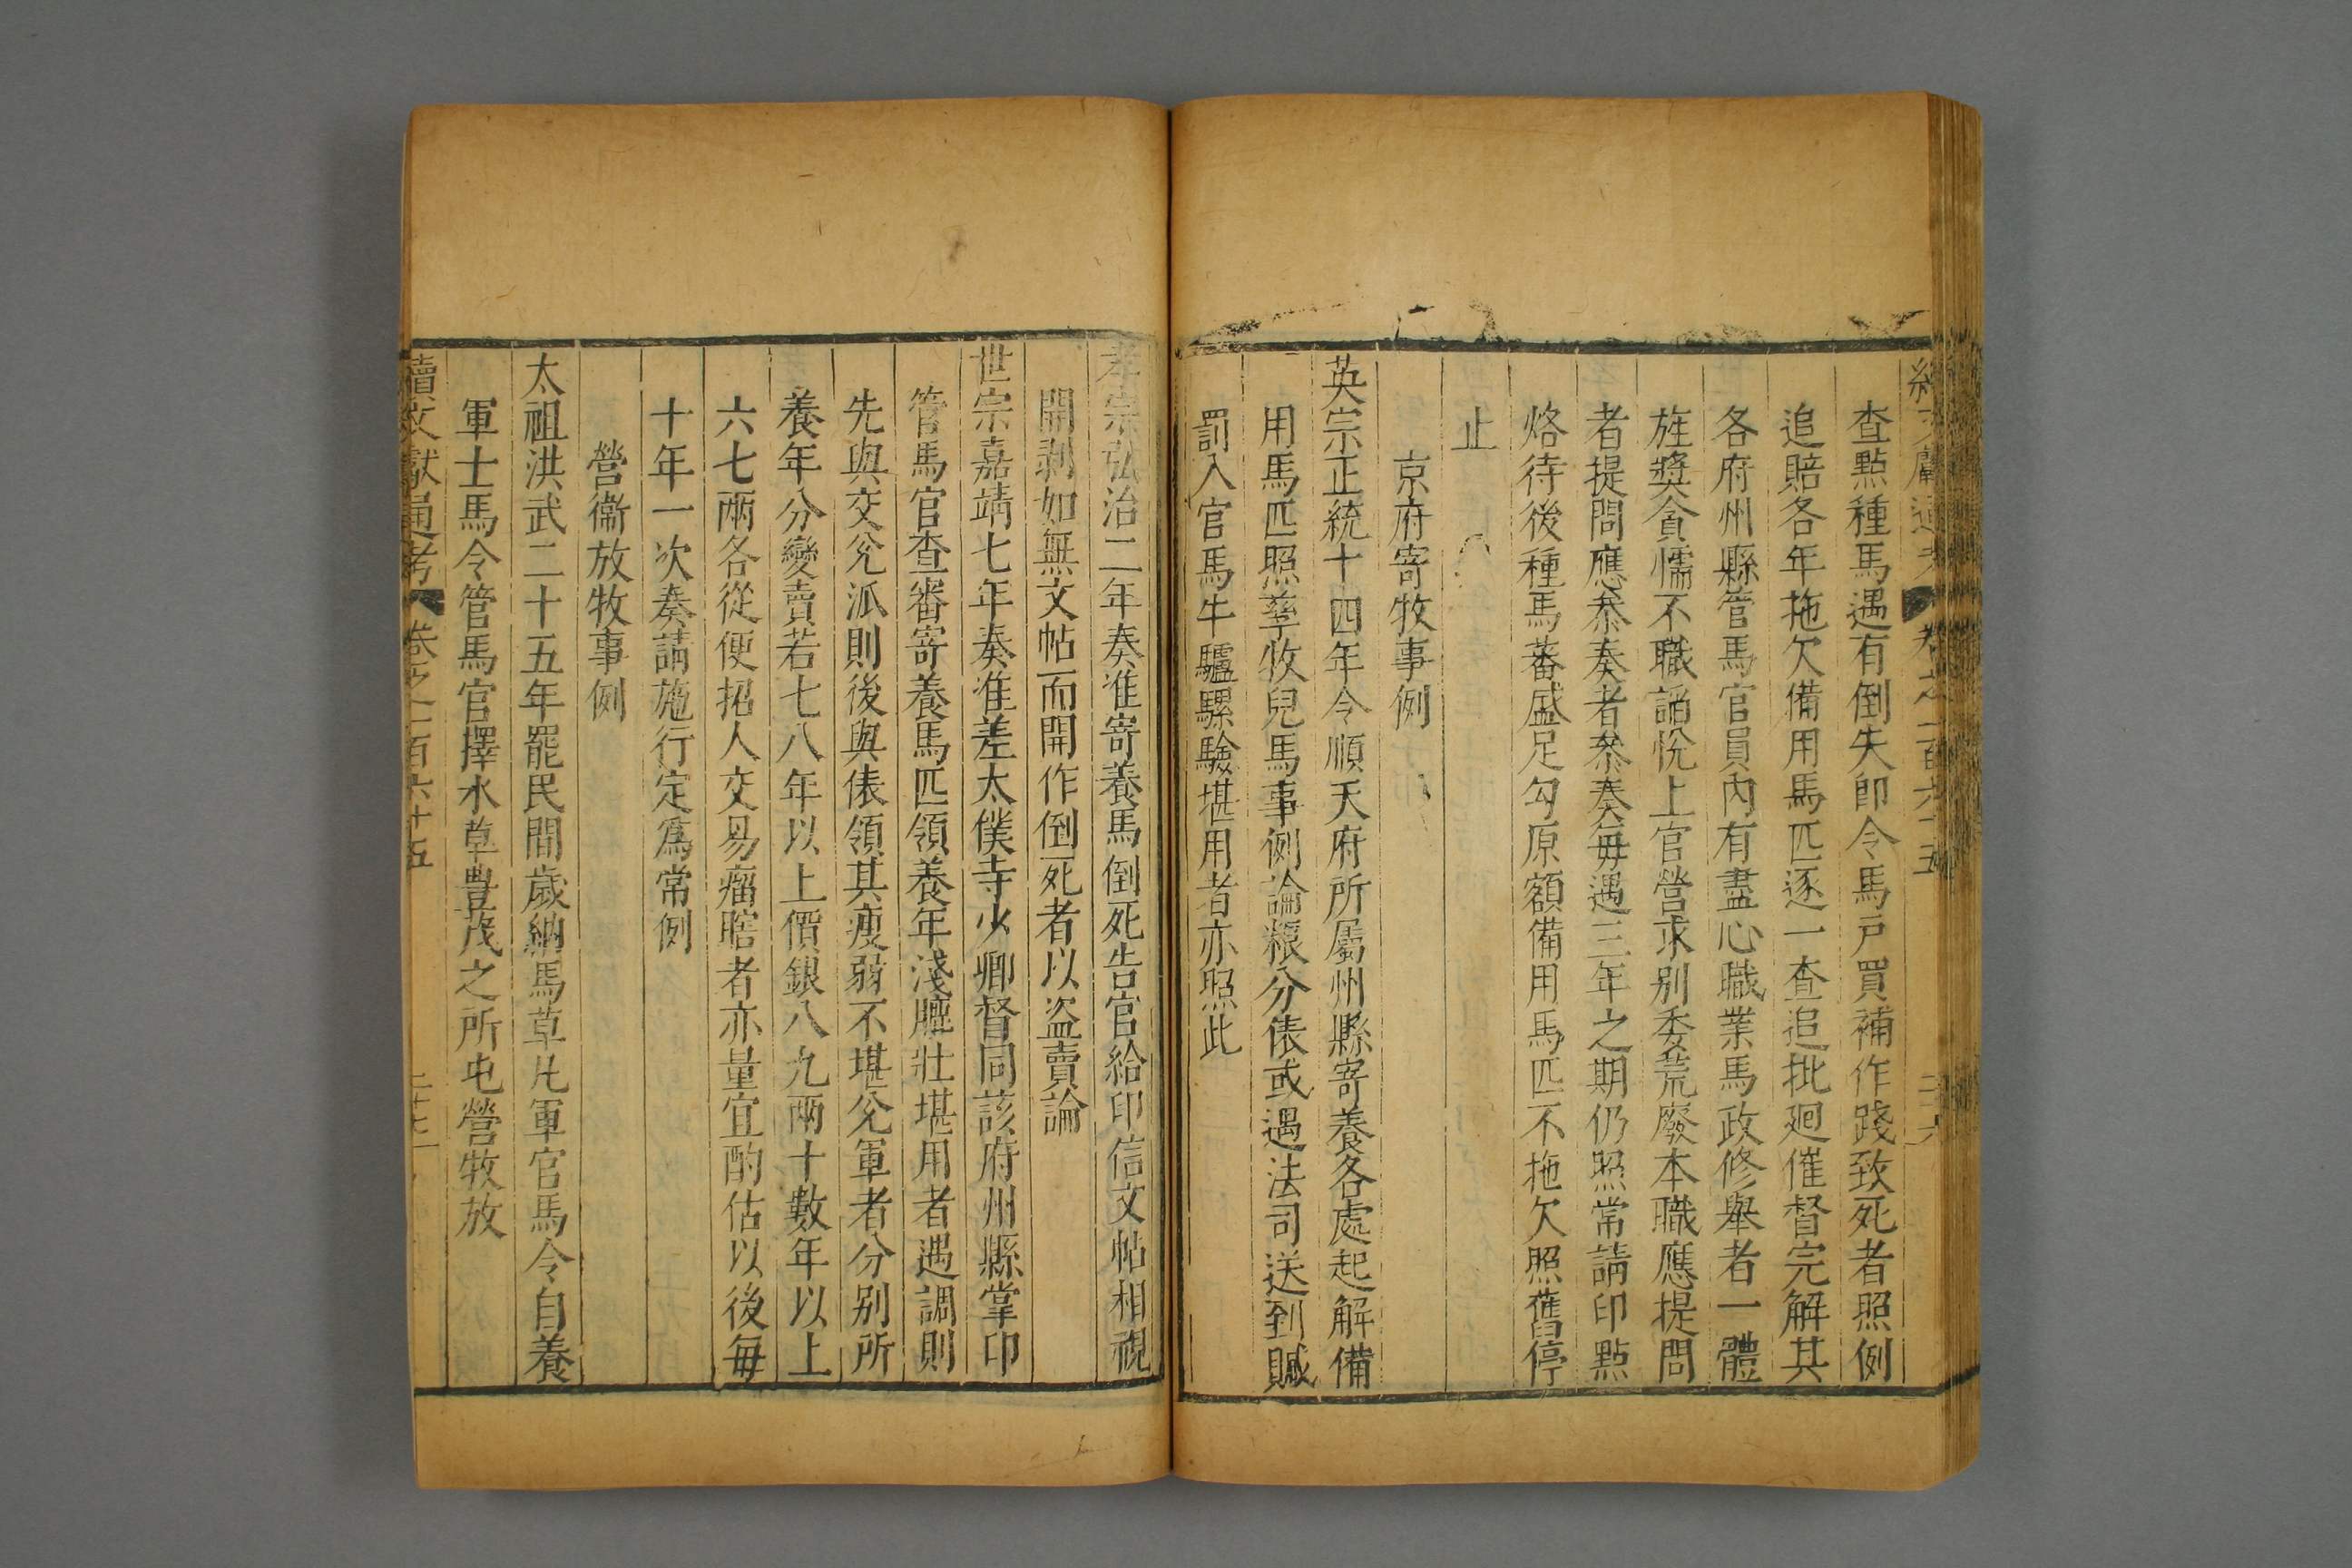 續文獻通考 卷之一百六十五 二十六
查點種馬遇有倒失卽令馬戸買補作踐致死者照例
追賠各年拖欠備用馬匹逐一查追批廻催督完解其
各府州縣管馬官員內有盡心職業馬政修舉者一體
旌奬貪懦不職謟悅上官營求别委荒廢本職應提問
者提問應叅奏者叅奏毎遇三年之期仍照常請印點
烙待後種馬蕃盛足勾原額備用馬匹不拖欠照舊停
止
京府寄牧事例
英宗正統十四年令順天府所屬州縣寄養各處起解備
用馬匹照孳牧兒馬事例論糧分俵或遇法司送到贓
罰入官馬牛驢騾驗堪用者亦照此
孝宗弘治二年奏准寄養馬倒死告官給印信文帖相視
開剥如無文帖而開作倒死者以盜賣論
世宗嘉靖七年奏准差太僕寺少卿督同該府州縣掌印
管馬官查審寄養馬匹領養年淺臕壯堪用者遇調則
先與交兌派則後與俵領其瘦弱不堪兌軍者分别所
養年分變賣若七八年以上價銀八九兩十數年以上
六七兩各從便招人交易瘤瞎者亦量宜酌估以後毎
十年一次奏請施行定爲常例
營衞放牧事例
太祖洪武二十五年罷民間歲納馬草凡軍官馬令自養
軍士馬令管馬官擇水草豊茂之所屯營牧放
續文獻通考 卷之一百六十五 二十七